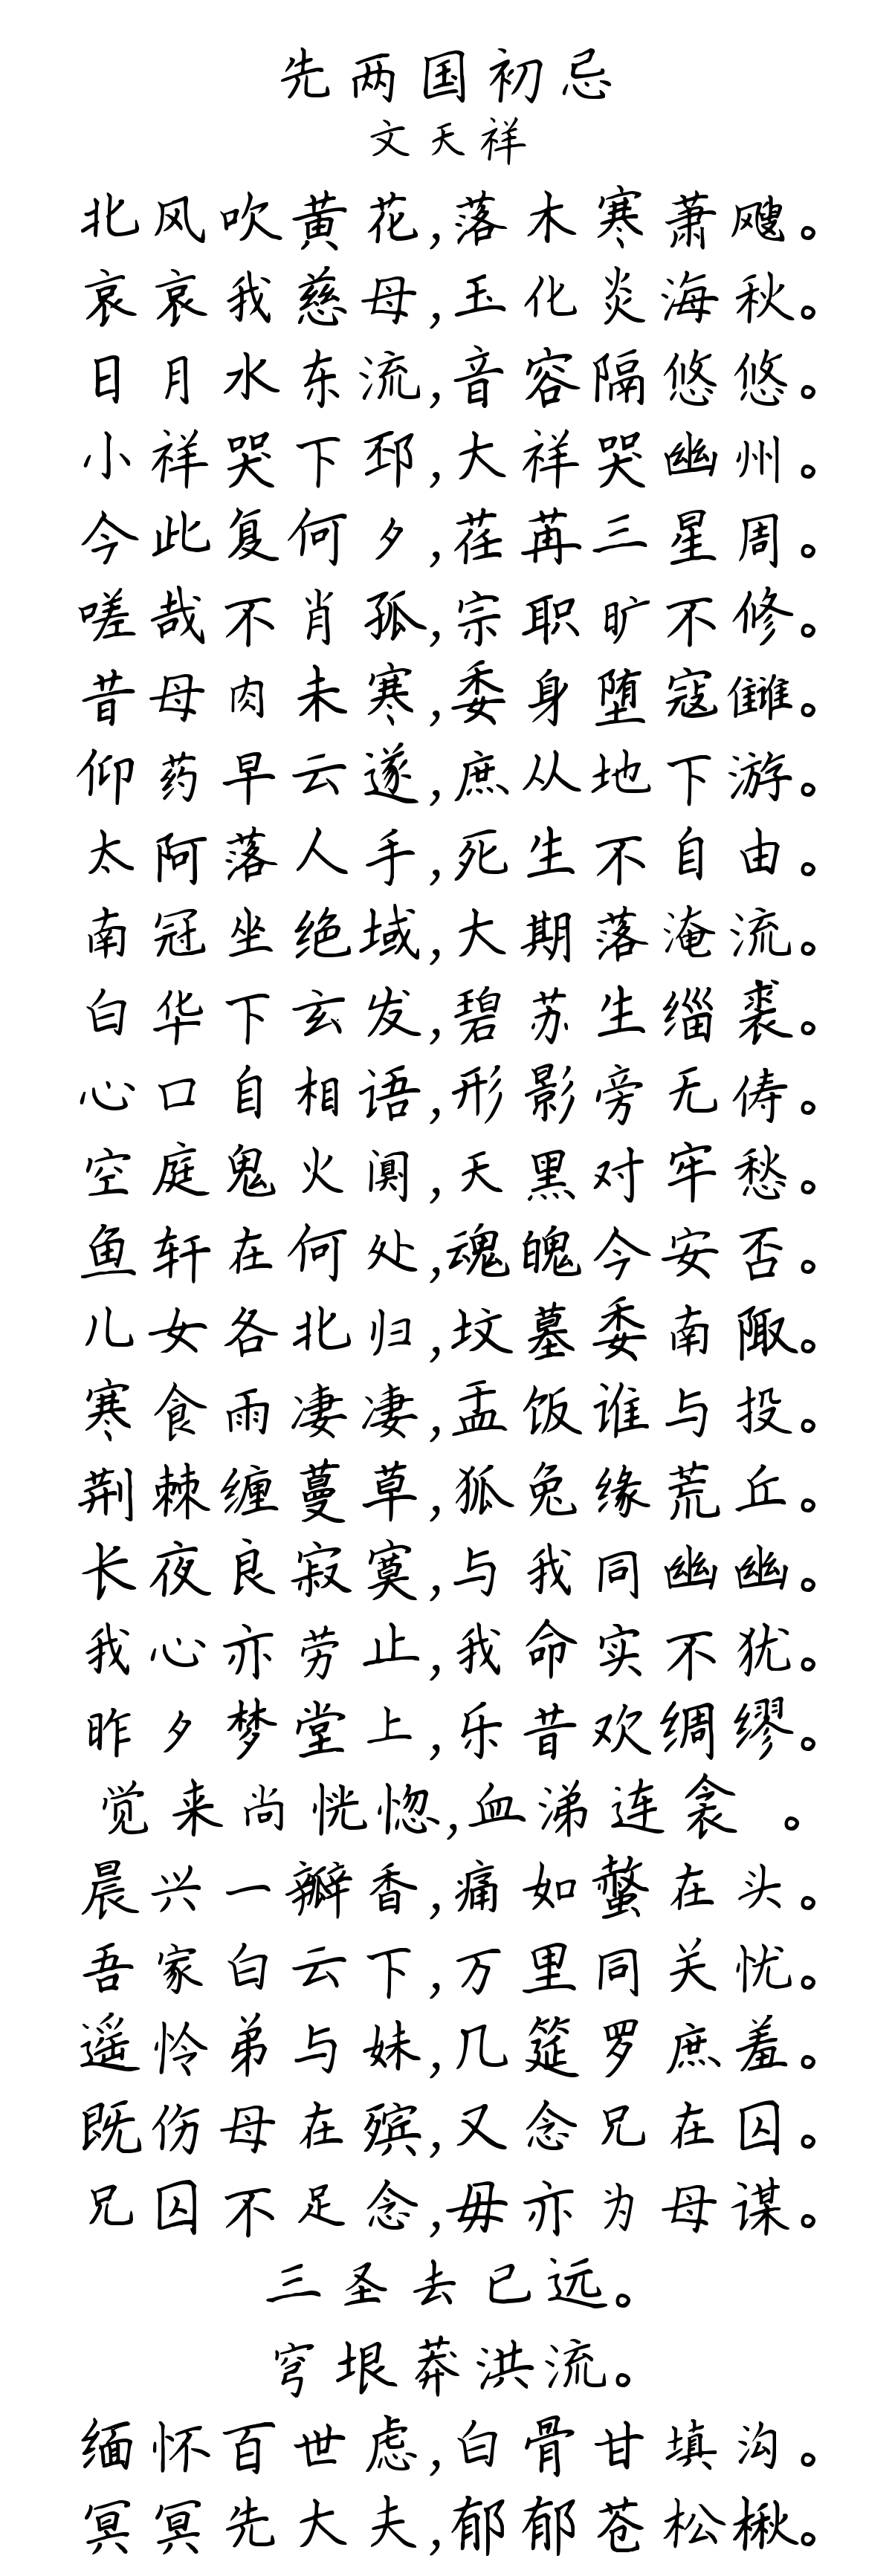 先两国初忌
文天祥
北风吹黄花,落木寒萧飕。
哀哀我慈母,玉化炎海秋。
日月水东流,音容隔悠悠。
小祥哭下邳,大祥哭幽州。
今此复何夕,荏苒三星周。
嗟哉不肖孤,宗职旷不修。
昔母肉未寒,委身堕寇雠。
仰药早云遂,庶从地下游。
太阿落人手,死生不自由。
南冠坐绝域,大期落淹流。
白华下玄发,碧苏生缁裘。
心口自相语,形影旁无俦。
空庭鬼火阒,天黑对牢愁。
鱼轩在何处,魂魄今安否。
儿女各北归,坟墓委南陬。
寒食雨凄凄,盂饭谁与投。
荆棘缠蔓草,狐兔缘荒丘。
长夜良寂寞,与我同幽幽。
我心亦劳止,我命实不犹。
昨夕梦堂上,乐昔欢绸缪。
觉来尚恍惚,血涕连衾 。
晨兴一瓣香,痛如螫在头。
吾家白云下,万里同关忧。
遥怜弟与妹,几筵罗庶羞。
既伤母在殡,又念兄在囚。
兄囚不足念,毋亦为母谋。
三圣去已远。
穹垠莽洪流。
缅怀百世虑,白骨甘填沟。
冥冥先大夫,郁郁苍松楸。